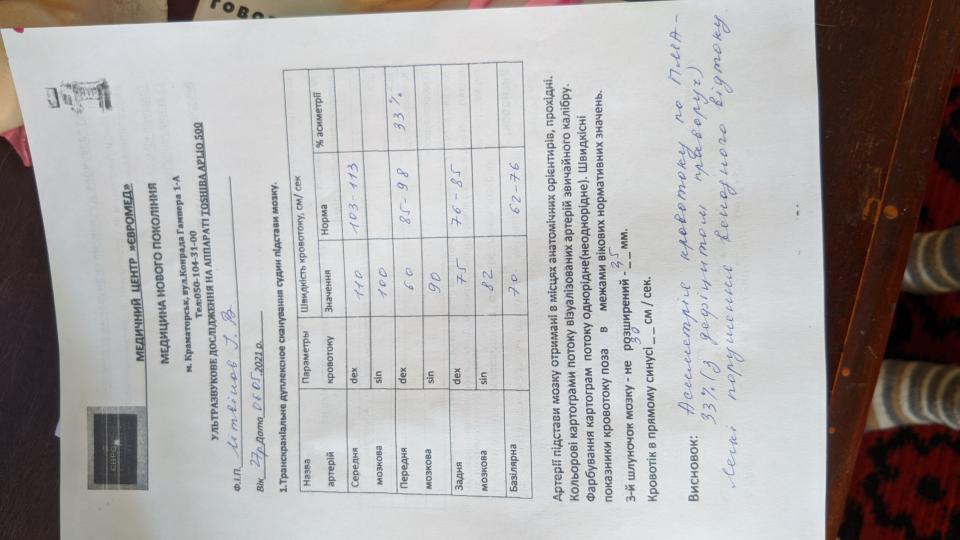 ГОВО
МЕДИЧНИЙ ЦЕНТР »ЄВРОМЕД»
МЕДИЦИНА НОВОГО ПОКОЛІННЯ
м. Краматорськ, вул.Конрада Гампера 1-А
Тел:050-104-31-00
УЛЬТРАЗВУКОВЕ ДОСЛІДЖЕННЯ НА АППАРАТІ TOSHIBA APLIO 500
Ф.І.П. Літвінов І. В.
Вік 27р Дата 06 05 2021 р.
1.Транскраніальне дуплексное сканування судин підстави мозку.
Назва артерій Параметры кровотоку Швидкість кровотоку, см/ сек % асиметрії
Значення Норма
Середня мозкова dex 110 103-113
sin 100
Передня мозкова dex 60 85-98 33%
sin 90
Задня мозкова dex 75 76-85
sin 82
Базілярна 70 62-76
Артерії підстави мозку отримані в місцях анатомічних орієнтирів, прохідні.
Кольорові картограми потоку візуалізованих артерій звичайного калібру.
Фарбування картограм потоку однорідне(неоднорідне). Швидкісні
показники кровотоку поза в межами вікових нормативних значень.
3-й шлуночок мозку - не розширений - 35 мм.
Кровотік в прямому синусі 30 см / сек.
Висновок: Асиметрія кровотоку по ПМА-
33% (з дефіцитом праворуч)
Легкі порушення венозного відтоку